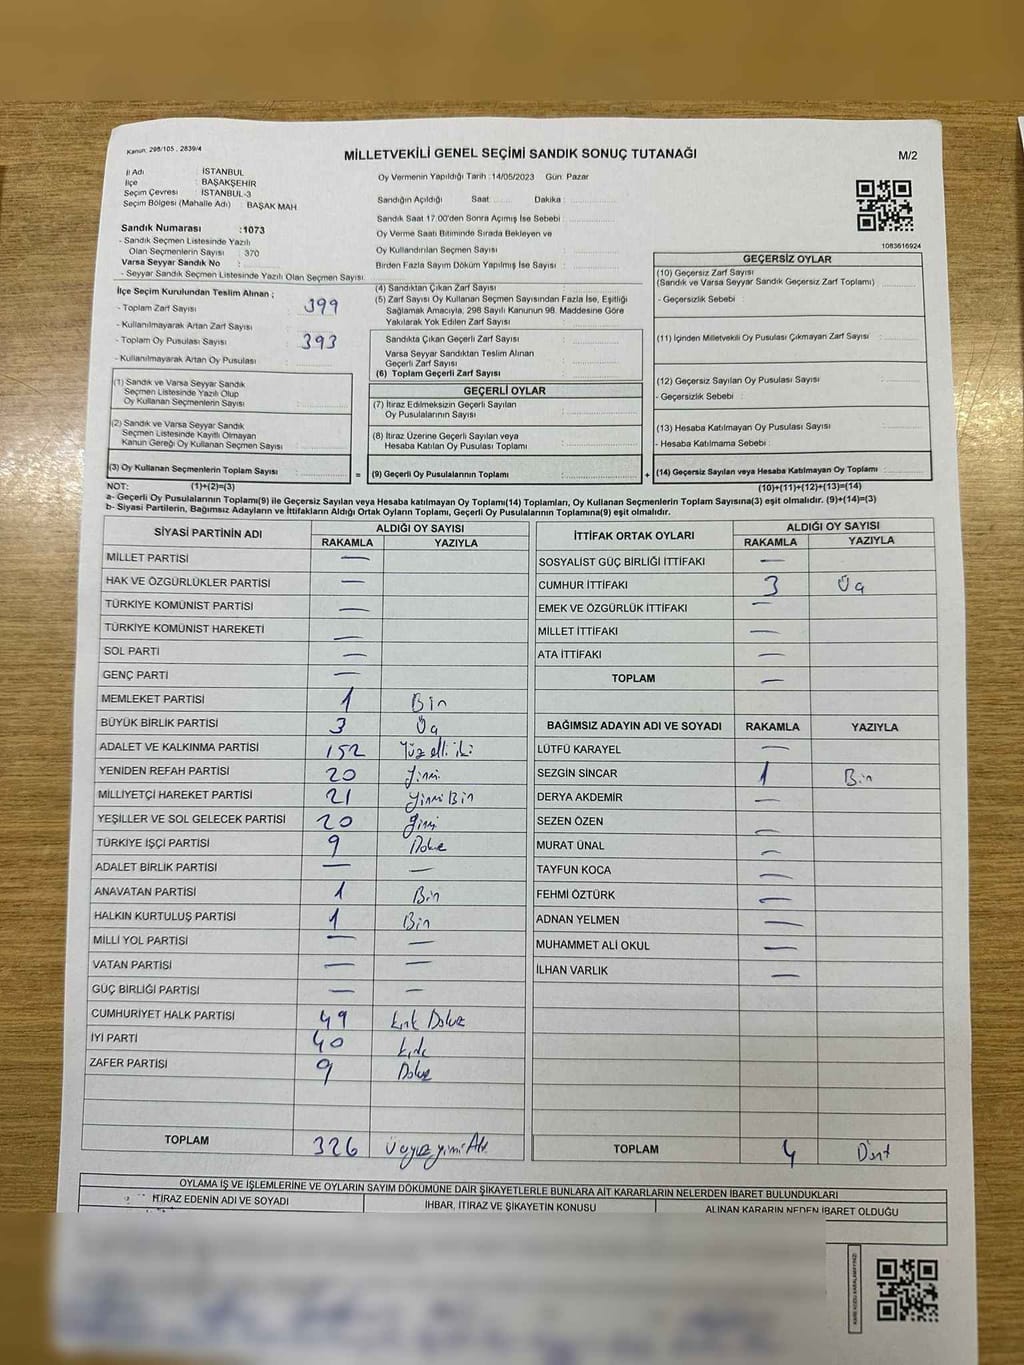 Kanun, 298/105 , 2839/4
MİLLETVEKİLİ GENEL SEÇİMİ SANDIK SONUÇ TUTANAĞI
M/2
İl Adı : İSTANBUL
İlçe : BAŞAKŞEHİR
Seçim Çevresi : İSTANBUL-3
Seçim Bölgesi (Mahalle Adı) : BAŞAK MAH
Oy Vermenin Yapıldığı Tarih :14/05/2023 Gün: Pazar
Sandığın Açıldığı Saat: Dakika :
Sandık Saat 17.00'den Sonra Açılmış İse Sebebi :
Oy Verme Saati Bitiminde Sırada Bekleyen ve
Oy Kullandırılan Seçmen Sayısı :
Birden Fazla Sayım Döküm Yapılmış İse Sayısı :
1083616924
Sandık Numarası :1073
- Sandık Seçmen Listesinde Yazılı
Olan Seçmenlerin Sayısı : 370
Varsa Seyyar Sandık No :
- Seyyar Sandık Seçmen Listesinde Yazılı Olan Seçmen Sayısı:
İlçe Seçim Kurulundan Teslim Alınan ;
- Toplam Zarf Sayısı : 399
- Kullanılmayarak Artan Zarf Sayısı :
- Toplam Oy Pusulası Sayısı : 393
- Kullanılmayarak Artan Oy Pusulası :
(1) Sandık ve Varsa Seyyar Sandık
Seçmen Listesinde Yazılı Olup
Oy Kullanan Seçmenlerin Sayısı :
(2) Sandık ve Varsa Seyyar Sandık
Seçmen Listesinde Kayıtlı Olmayan
Kanun Gereği Oy Kullanan Seçmen Sayısı :
(3) Oy Kullanan Seçmenlerin Toplam Sayısı :
(4) Sandıktan Çıkan Zarf Sayısı :
(5) Zarf Sayısı Oy Kullanan Seçmen Sayısından Fazla İse, Eşitliği
Sağlamak Amacıyla, 298 Sayılı Kanunun 98. Maddesine Göre
Yakılarak Yok Edilen Zarf Sayısı :
Sandıkta Çıkan Geçerli Zarf Sayısı :
Varsa Seyyar Sandıktan Teslim Alınan
Geçerli Zarf Sayısı :
(6) Toplam Geçerli Zarf Sayısı :
GEÇERLİ OYLAR
(7) İtiraz Edilmeksizin Geçerli Sayılan
Oy Pusulalarının Sayısı :
(8) İtiraz Üzerine Geçerli Sayılan veya
Hesaba Katılan Oy Pusulalarının Sayısı :
= (9) Geçerli Oy Pusulalarının Toplamı :
GEÇERSİZ OYLAR
(10) Geçersiz Zarf Sayısı
(Sandık ve Varsa Seyyar Sandık Geçersiz Zarf Toplamı) :
- Geçersizlik Sebebi :
(11) İçinden Milletvekili Oy Pusulası Çıkmayan Zarf Sayısı :
(12) Geçersiz Sayılan Oy Pusulası Sayısı :
- Geçersizlik Sebebi :
(13) Hesaba Katılmayan Oy Pusulası Sayısı :
- Hesaba Katılmama Sebebi :
+ (14) Geçersiz Sayılan veya Hesaba Katılmayan Oy Toplamı :
NOT: (1)+(2)=(3) (10)+(11)+(12)+(13)=(14)
a- Geçerli Oy Pusulalarının Toplamı(9) ile Geçersiz Sayılan veya Hesaba katılmayan Oy Toplamı(14) Toplamları, Oy Kullanan Seçmenlerin Toplam Sayısına(3) eşit olmalıdır. (9)+(14)=(3)
b- Siyasi Partilerin, Bağımsız Adayların ve İttifakların Aldığı Ortak Oyların Toplamı, Geçerli Oy Pusulalarının Toplamına(9) eşit olmalıdır.
SİYASİ PARTİNİN ADI ALDIĞI OY SAYISI
RAKAMLA YAZIYLA
MİLLET PARTİSİ —
HAK VE ÖZGÜRLÜKLER PARTİSİ —
TÜRKİYE KOMÜNİST PARTİSİ —
TÜRKİYE KOMÜNİST HAREKETİ —
SOL PARTİ —
GENÇ PARTİ —
MEMLEKET PARTİSİ 1 Bir
BÜYÜK BİRLİK PARTİSİ 3 Üç
ADALET VE KALKINMA PARTİSİ 152 Yüz elli iki
YENİDEN REFAH PARTİSİ 20 Yirmi
MİLLİYETÇİ HAREKET PARTİSİ 21 Yirmi Bir
YEŞİLLER VE SOL GELECEK PARTİSİ 20 Yirmi
TÜRKİYE İŞÇİ PARTİSİ 9 Dokuz
ADALET BİRLİK PARTİSİ — —
ANAVATAN PARTİSİ 1 Bir
HALKIN KURTULUŞ PARTİSİ 1 Bir
MİLLİ YOL PARTİSİ — —
VATAN PARTİSİ — —
GÜÇ BİRLİĞİ PARTİSİ — —
CUMHURİYET HALK PARTİSİ 49 Kırk Dokuz
İYİ PARTİ 40 Kırk
ZAFER PARTİSİ 9 Dokuz
TOPLAM 326 Üçyüz yirmi Altı
İTTİFAK ORTAK OYLARI ALDIĞI OY SAYISI
RAKAMLA YAZIYLA
SOSYALİST GÜÇ BİRLİĞİ İTTİFAKI —
CUMHUR İTTİFAKI 3 Üç
EMEK VE ÖZGÜRLÜK İTTİFAKI —
MİLLET İTTİFAKI —
ATA İTTİFAKI —
TOPLAM —
BAĞIMSIZ ADAYIN ADI VE SOYADI RAKAMLA YAZIYLA
LÜTFÜ KARAYEL —
SEZGİN SİNCAR 1 Bir
DERYA AKDEMİR —
SEZEN ÖZEN —
MURAT ÜNAL —
TAYFUN KOCA —
FEHMİ ÖZTÜRK —
ADNAN YELMEN —
MUHAMMET ALİ OKUL —
İLHAN VARLIK —
TOPLAM 4 Dört
OYLAMA İŞ VE İŞLEMLERİNE VE OYLARIN SAYIM DÖKÜMÜNE DAİR ŞİKAYETLERLE BUNLARA AİT KARARLARIN NELERDEN İBARET BULUNDUKLARI
İTİRAZ EDENİN ADI VE SOYADI İHBAR, İTİRAZ VE ŞİKAYETİN KONUSU ALINAN KARARIN NEDEN İBARET OLDUĞU